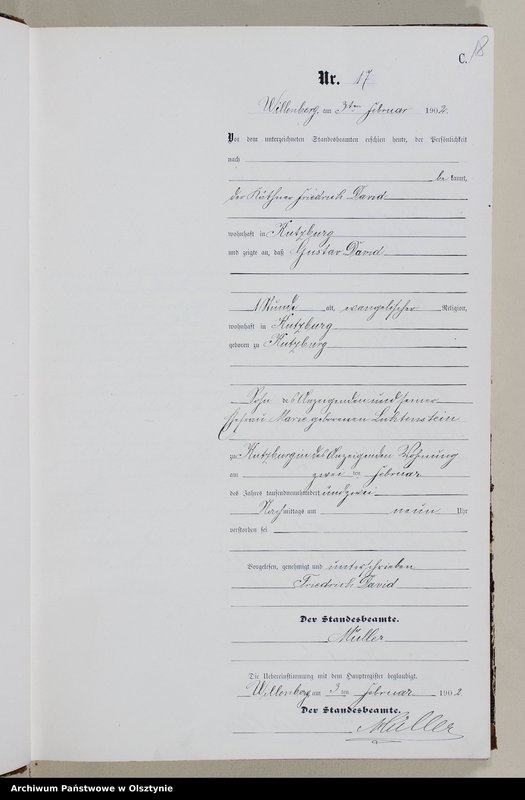 C. 18
Nr. 17
Willenberg, am 3ten Februar 1902.
Vor dem unterzeichneten Standesbeamten erschien heute, der Persönlichkeit
nach
be kannt,
der Käthner Friedrich David
wohnhaft in Kutzburg
und zeigte an, daß Gustav David
1 Stunde alt, evangelischer Religion,
wohnhaft in Kutzburg
geboren zu Kutzburg
Sohn des Anzeigenden und seiner
Ehefrau Marie geborenen
zu Kutzburg in des Anzeigenden Wohnung
am zwei ten Februar
des Jahres tausendneunhundert und zwei
Nachmittags um neun Uhr
verstorben sei
Vorgelesen, genehmigt und unterschrieben
Friedrich David
Der Standesbeamte.
Müller
Die Uebereinstimmung mit dem Hauptregister beglaubigt.
Willenberg am 3 ten Februar 1902
Der Standesbeamte.
Müller
Archiwum Państwowe w Olsztynie